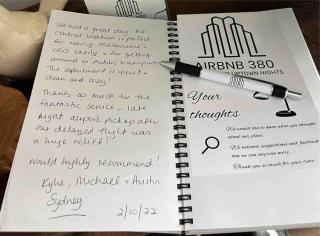 We had a great stay. The
central location is perfect
for seeing Melbourne's
CBD easily & for getting
around on public transport.
The apartment is quiet &
clean and cozy!
Thanks so much for the
fantastic service - late
night airport pickup after
our delayed flight was
a huge relief!
Would highly recommend!
Kylie, Michael & Austin
Sydney
2/10/22
AIRBNB 380
UPTOWN NIGHTS
Your
thoughts
We would love to know what you thought
about our place.
We welcome suggestions and feedback
how we can improve more.
Thank you so much for your time.